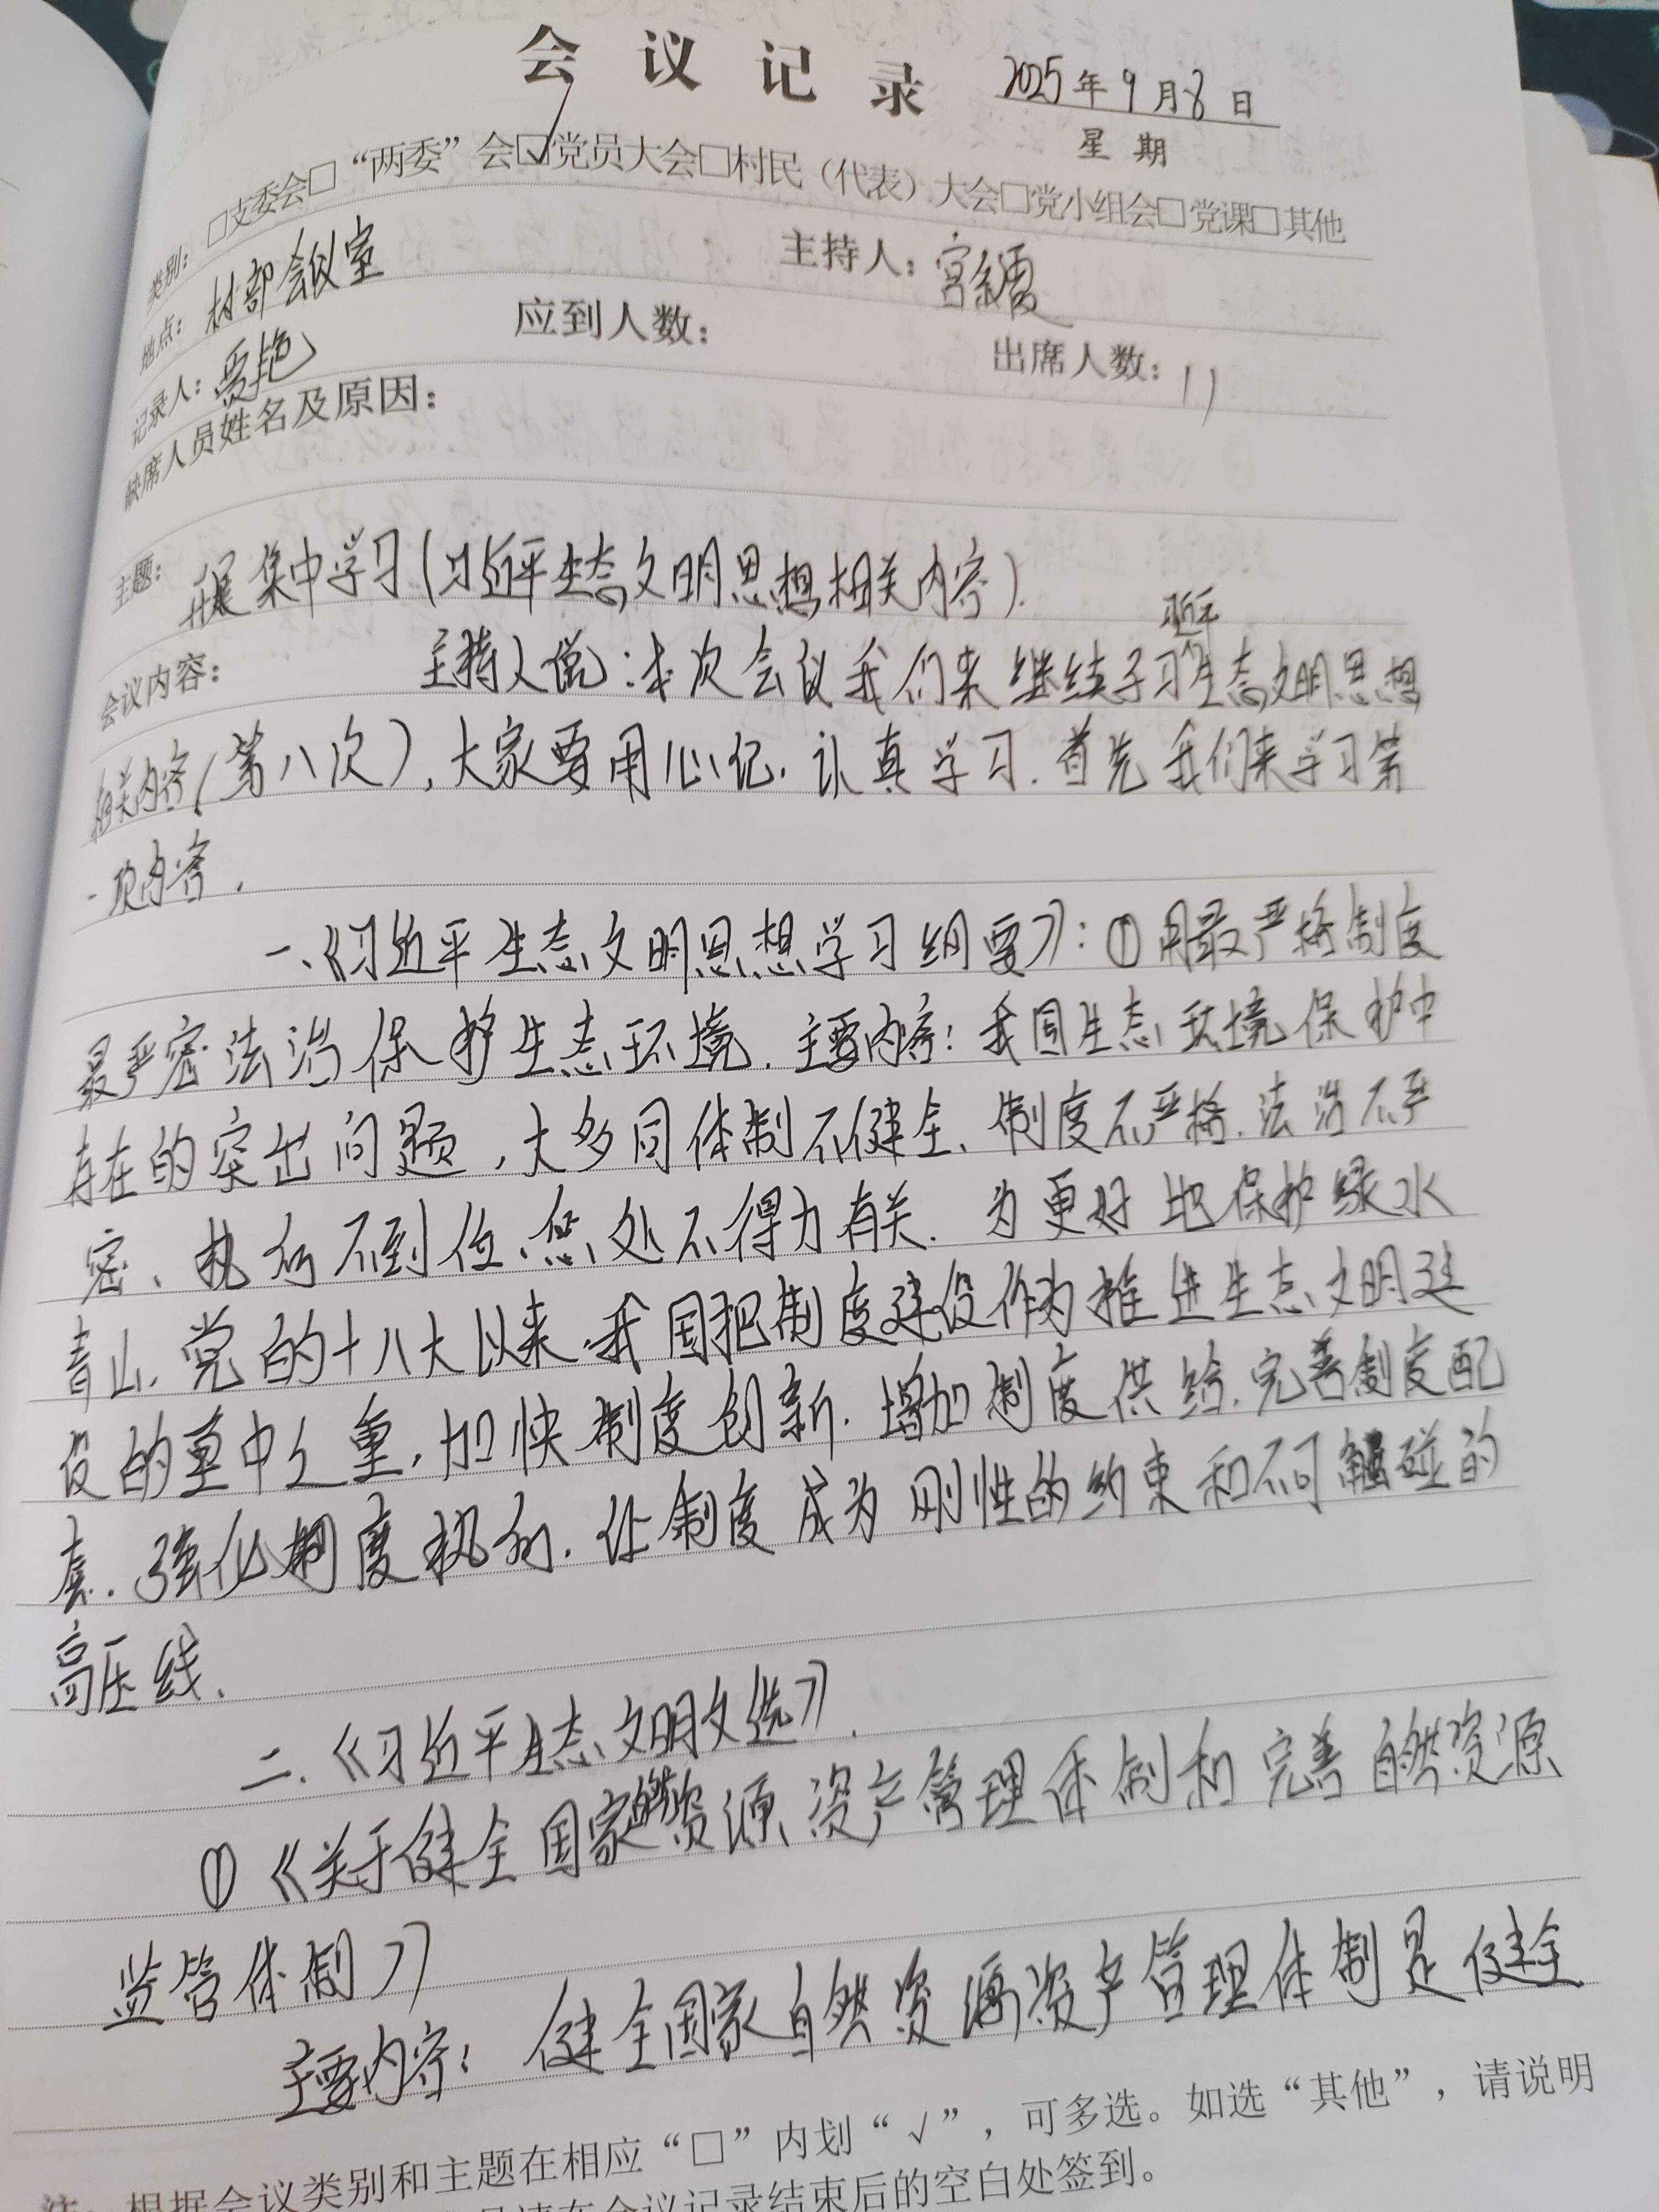 会 议 记 录 2025年9月8日
星 期
类别：□支委会□“两委”会☑党员大会□村民（代表）大会□党小组会□党课□其他
地点：村部会议室 主持人：宫
记录人：贾艳 应到人数： 出席人数：11
缺席人员姓名及原因：
主题：开展集中学习(习近平生态文明思想相关内容).
会议内容： 主持人说:本次会议我们来继续学习习近平生态文明思想
相关内容(第八次),大家要用心记.认真学习.首先我们来学习第
一项内容.
一、《习近平生态文明思想学习纲要》:①用最严格制度
最严密法治保护生态环境.主要内容:我国生态环境保护中
存在的突出问题,大多同体制不健全、制度不严格.法治不严
密、执行不到位、惩处不得力有关.为更好地保护绿水
青山.党的十八大以来.我国把制度建设作为推进生态文明建
设的重中之重,加快制度创新.增加制度供给.完善制度配
套.强化制度执行.让制度成为刚性的约束和不可触碰的
高压线.
二.《习近平生态文明文选》.
①《关于健全国家自然资源资产管理体制和完善自然资源
监管体制》
主要内容:健全国家自然资源资产管理体制是健全
注：根据会议类别和主题在相应“□”内划“√”，可多选。如选“其他”，请说明
会议记录结束后的空白处签到。